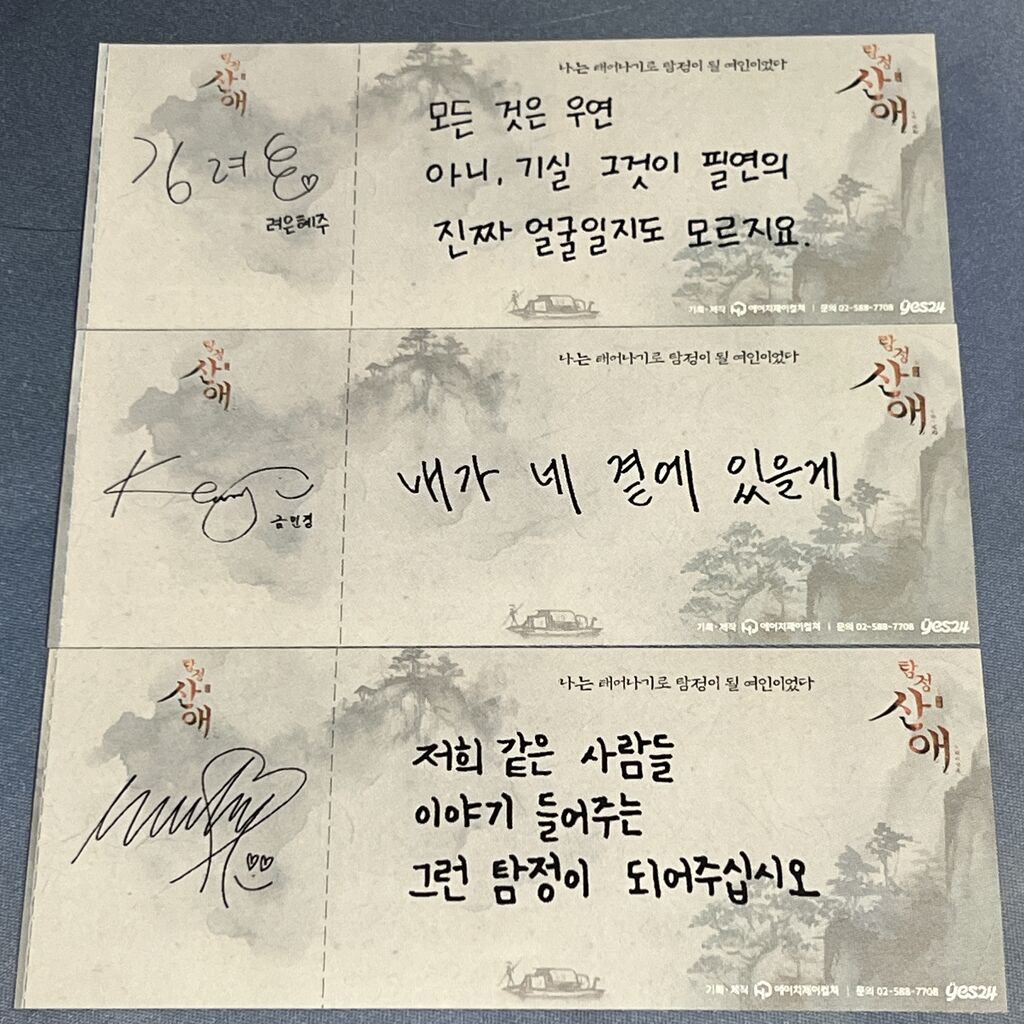 탐정
산애
나는 태어나기로 탐정이 될 여인이었다
탐정
산애
김려은
려은혜주
모든 것은 우연
아니, 기실 그것이 필연의
진짜 얼굴일지도 모르지요.
기획·제작 에이치제이컬쳐 | 문의 02-588-7708 yes24
탐정
산애
나는 태어나기로 탐정이 될 여인이었다
탐정
산애
금민경
내가 네 곁에 있을게
기획·제작 에이치제이컬쳐 | 문의 02-588-7708 yes24
탐정
산애
나는 태어나기로 탐정이 될 여인이었다
탐정
산애
저희 같은 사람들
이야기 들어주는
그런 탐정이 되어주십시오
기획·제작 에이치제이컬쳐 | 문의 02-588-7708 yes24